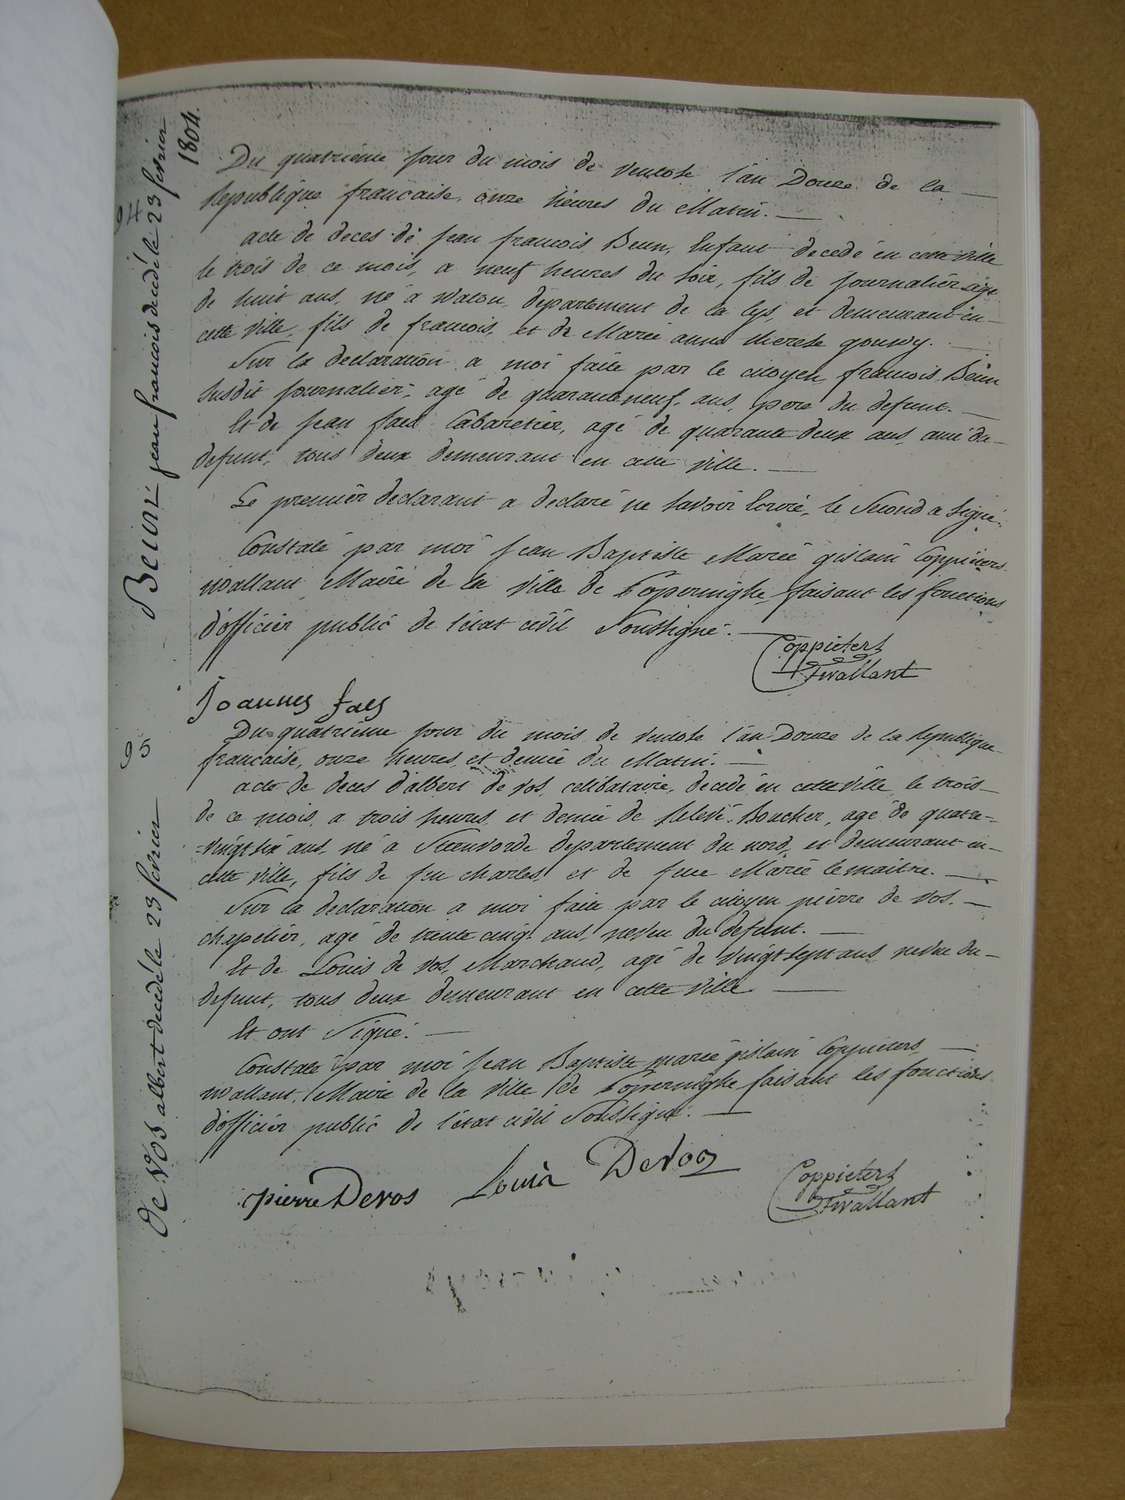 94
Beun jean francois decedé le 23 fevrier
1804.
Du quatrième jour du mois de ventose l'an Douze de la
Republique francaise, onze heures du Matin.
acte de deces de jean francois Beun, Enfant decedé en cette ville
le trois de ce mois, a neuf heures du soir, fils de journalier agé
de huit ans, né a watou, departement de la Lys, et demeurant en
cette ville, fils de francois, et de Marie anne therese gouwy.
Sur la declaration a moi faite par le citoyen francois Beun
susdit journalier, agé de quaranteneuf ans, pere du defunt.
Et de jean faes Cabaretier, agé de quarante deux ans, ami du
defunt, tous deux demeurant en cette ville.
Le premier declarant a declaré ne savoir Ecrire, le Second a signé.
Constaté par moi jean Baptiste Marie gislain Coppieters
wallant Maire de la ville de Poperinghe, faisant les fonctions
d'officier public de l'état civil Soussigné.
Coppieters
Twallant
Joannes faes
95
De vos albert decedé le 23 fevrier
Du quatrième jour du mois de ventose l'an Douze de la Republique
francaise, onze heures et demie du Matin.
acte de deces d'albert de vos, celibataire, decedé en cette ville le trois
de ce mois, a trois heures et demie de relevé, Boucher, agé de quatre
vingt six ans, né à Steenvorde departement du nord, et demeurant en
cette ville, fils de feu charles, et de feue Marie lemaitre.
Sur la declaration a moi faite par le citoyen pierre de vos,
chapelier, agé de trente cinq ans, neveu du defunt.
Et de Louis de vos, Marchand, agé de vingt sept ans neveu du
defunt, tous deux demeurant en cette ville
Et ont Signé.
Constaté par moi jean Baptiste marie gislain Coppieters
wallant, Maire de la ville de Poperinghe faisant les fonctions
d'officier public de l'état civil Soussigné.
pierre Devos Louis Devos
Coppieters
Twallant